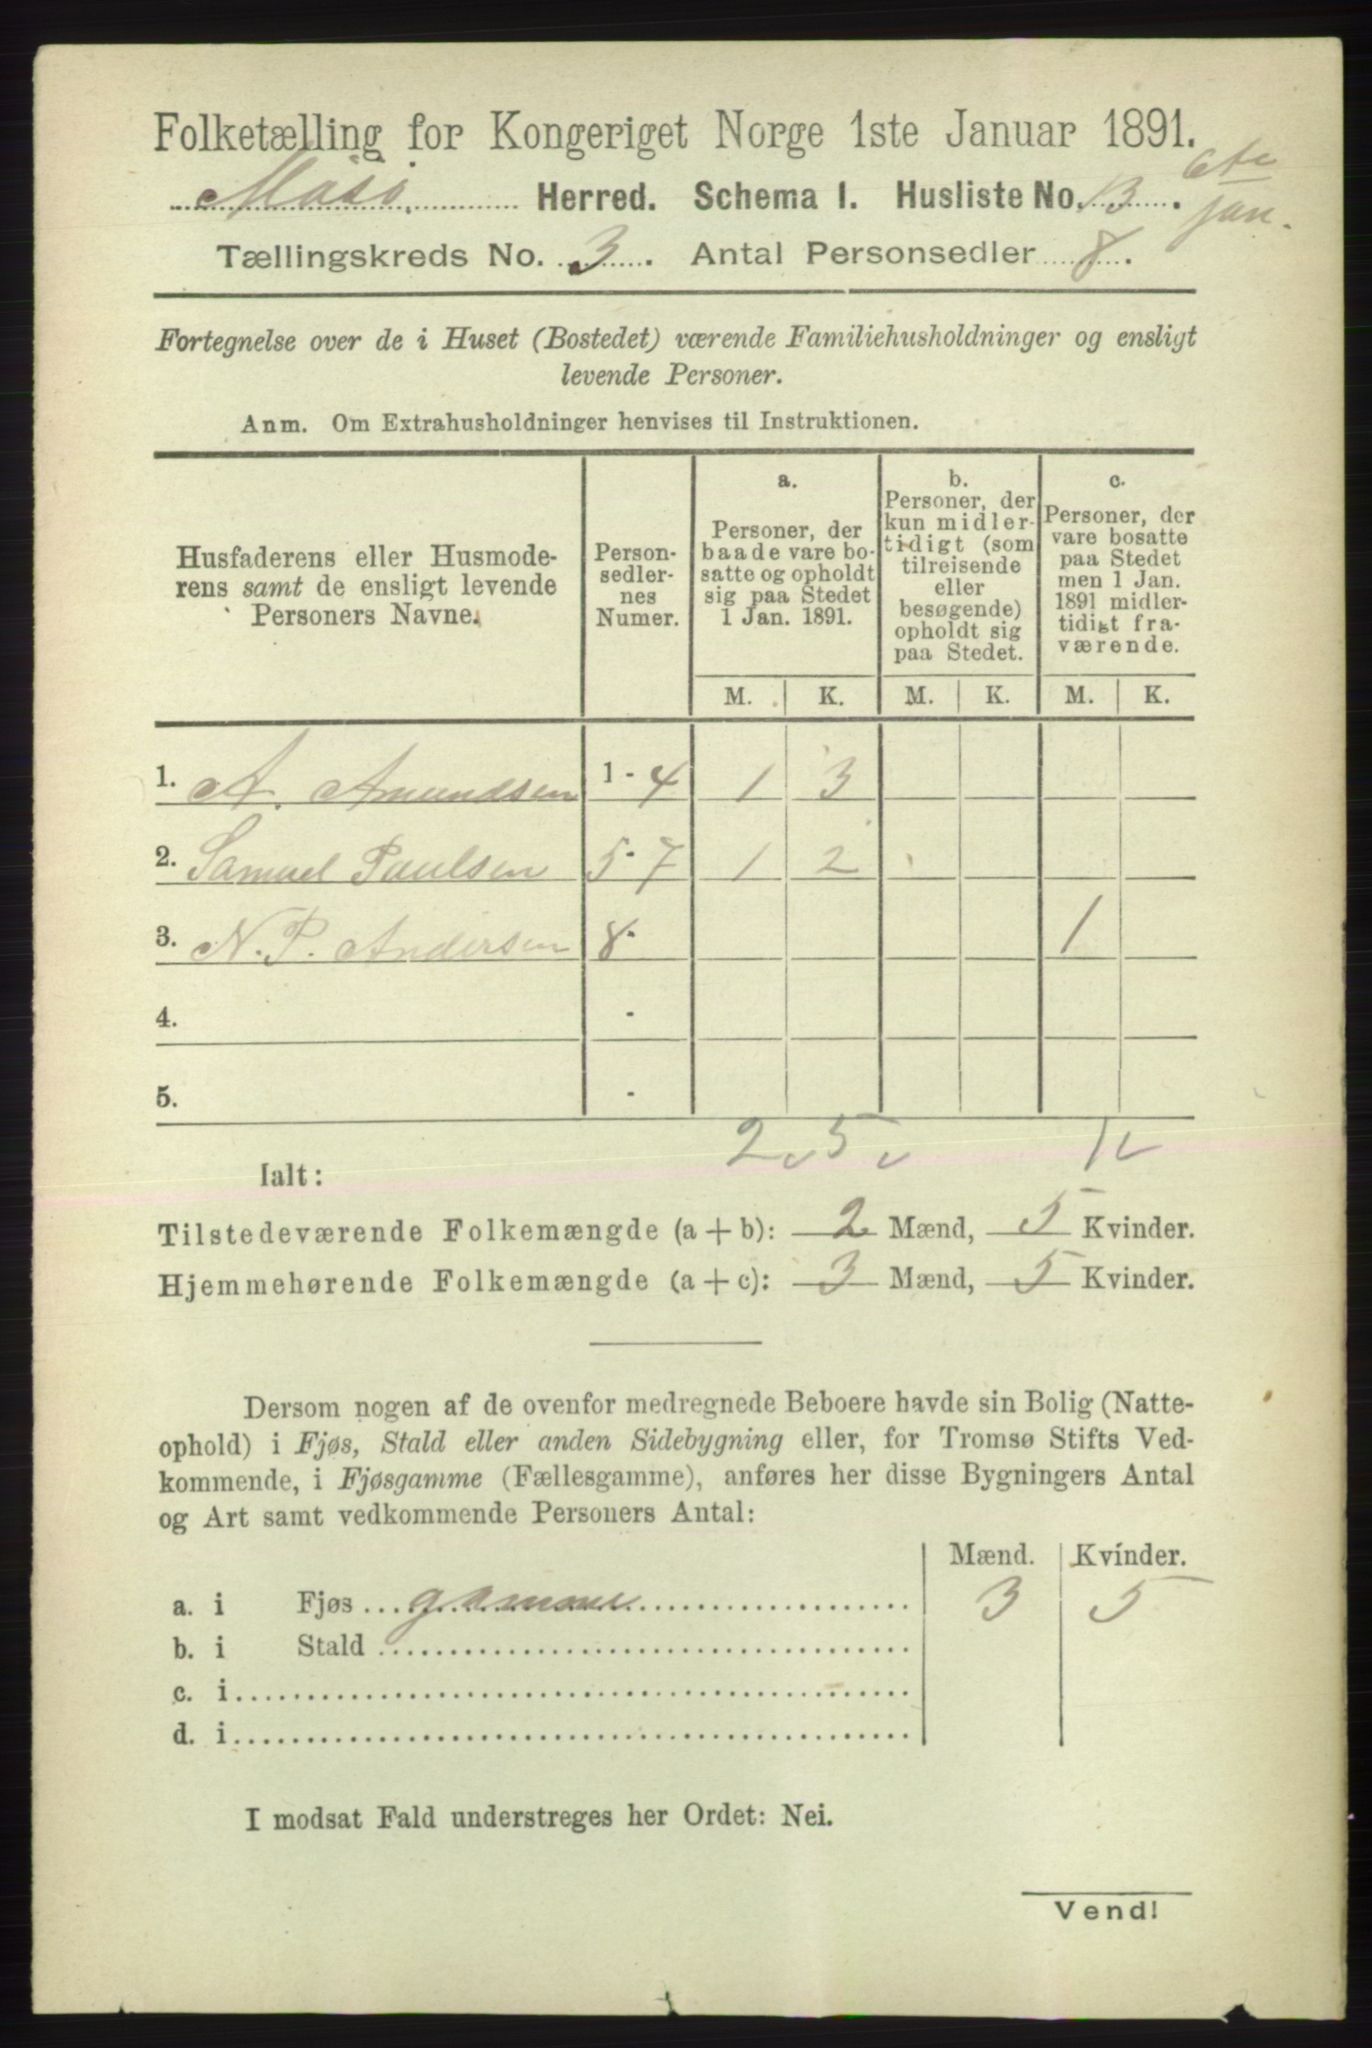 Folketælling for Kongeriget Norge 1ste Januar 1891.
Måsø. Herred. Schema I. Husliste No. 13. 6te
jan.
Tællingskreds No. 3. Antal Personsedler 8.
Fortegnelse over de i Huset (Bostedet) værende Familiehusholdninger og ensligt
levende Personer.
Anm. Om Extrahusholdninger henvises til Instruktionen.
Husfaderens eller Husmode-
rens samt de ensligt levende
Personers Navne.
Person-
sedler-
nes
Numer.
a.
Personer, der
baade vare bo-
satte og opholdt
sig paa Stedet
1 Jan. 1891.
b.
Personer, der
kun midler-
tidigt (som
tilreisende
eller
besøgende)
opholdt sig
paa Stedet.
c.
Personer, der
vare bosatte
paa Stedet
men 1 Jan.
1891 midler-
tidigt fra-
værende.
M. K. M. K. M. K.
1. A. Amundsen 1-4 1 3
2. Samuel Paulsen 5-7 1 2
3. N. P. Andersen 8- 1
4. -
5. -
2 5 1
Ialt:
Tilstedeværende Folkemængde (a + b): 2 Mænd, 5 Kvinder.
Hjemmehørende Folkemængde (a + c): 3 Mænd, 5 Kvinder.
Dersom nogen af de ovenfor medregnede Beboere havde sin Bolig (Natte-
ophold) i Fjøs, Stald eller anden Sidebygning eller, for Tromsø Stifts Ved-
kommende, i Fjøsgamme (Fællesgamme), anføres her disse Bygningers Antal
og Art samt vedkommende Personers Antal:
Mænd. Kvinder.
a. i Fjøs gamme 3 5
b. i Stald
c. i
d. i
I modsat Fald understreges her Ordet: Nei.
Vend!